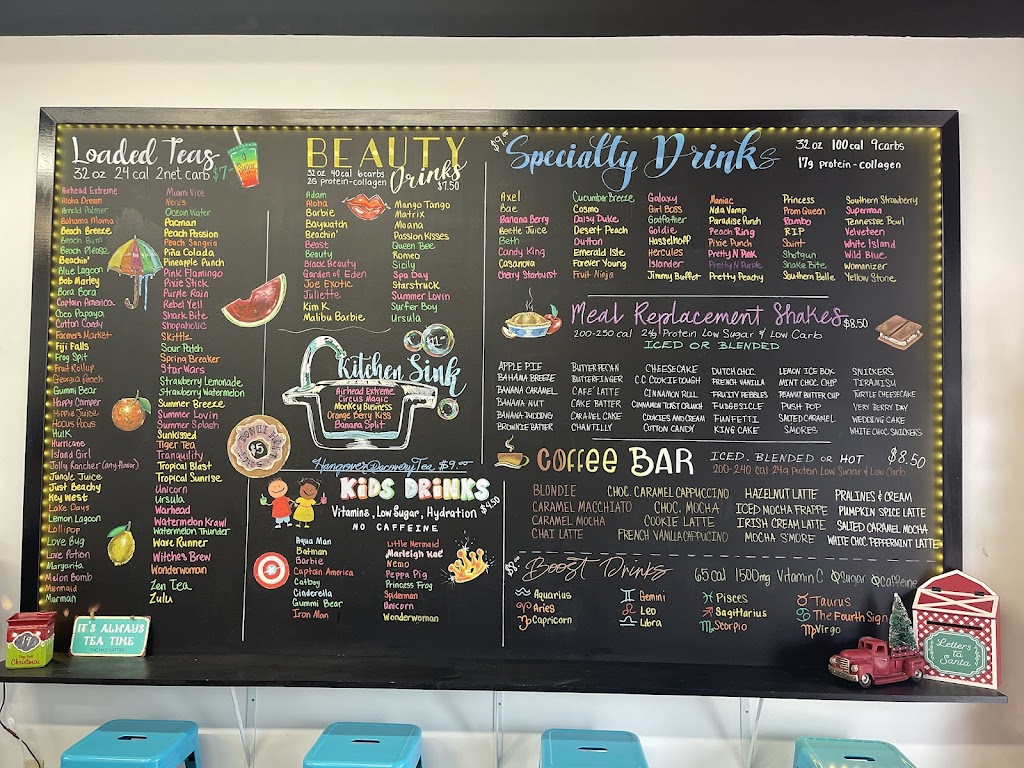 Loaded Teas
32 oz 24 cal 2net carb $7-
0 Sugar
Airhead Extreme
Aloha Dream
Arnold Palmer
Bahama Mama
Beach Breeze
Beach Bum
Beach Please
Beachin'
Blue Lagoon
Bob Marley
Bora Bora
Captain America
Coco Papaya
Cotton Candy
Farmers Market
Fiji Falls
Frog Spit
Fruit Rollup
Georgia Peach
Gummi Bear
Happy Camper
Hippie Juice
Hocus Pocus
Hulk
Hurricane
Island Girl
Jolly Rancher (any flavor)
Jungle Juice
Just Beachy
Key West
Lake Days
Lemon Lagoon
Lollipop
Love Bug
Love Potion
Margarita
Melon Bomb
Mermaid
Merman
Miami Vice
Nerds
Ocean Water
Pacman
Peach Passion
Peach Sangria
Piña Colada
Pineapple Punch
Pink Flamingo
Pixie Stick
Purple Rain
Rebel Yell
Shark Bite
Shopaholic
Skittlz
Sour Patch
Spring Breaker
Star Wars
Strawberry Lemonade
Strawberry Watermelon
Summer Breeze
Summer Lovin
Summer Splash
Sunkissed
Tiger Tea
Tranquility
Tropical Blast
Tropical Sunrise
Unicorn
Ursula
Warhead
Watermelon Krawl
Watermelon Thunder
Wave Runner
Witches Brew
Wonderwoman
Zen Tea
Zulu
BEAUTY
Drinks
32 oz 40 cal 6 carbs
26 protein-collagen
$7.50
Adam
Aloha
Barbie
Baywatch
Beachin'
Beast
Beauty
Black Beauty
Garden of Eden
Joe Exotic
Juliette
Kim K
Malibu Barbie
Mango Tango
Matrix
Moana
Passion Kisses
Queen Bee
Romeo
Sicily
Spa Day
Starstruck
Summer Lovin
Surfer Boy
Ursula
Kitchen Sink
Airhead Extreme
Circus Magic
Monkey Business
Orange Berry Kiss
Banana Split
$5
Hangover Recovery Tea $9.00
KIDS DRINKS
$4.50
Vitamins, Low Sugar, Hydration
NO CAFFEINE
Aqua Man
Batman
Barbie
Captain America
Catboy
Cinderella
Gummi Bear
Iron Man
Little Mermaid
Marleigh Kae
Nemo
Peppa Pig
Princess Frog
Spiderman
Unicorn
Wonderwoman
$9.00
Specialty Drinks
32 oz 100 cal 9carbs
17g protein-collagen
Axel
Bae
Banana Berry
Beetle Juice
Beth
Candy King
Casanova
Cherry Starburst
Cucumber Breeze
Cosmo
Daisy Duke
Desert Peach
Dutton
Emerald Isle
Forever Young
Fruit Ninja
Galaxy
Girl Boss
Godfather
Goldie
Hasselhoff
Hercules
Islander
Jimmy Buffet
Maniac
Nda Vamp
Paradise Punch
Peach Ring
Pixie Punch
Pretty N Pink
Pretty N Purple
Pretty Peachy
Princess
Prom Queen
Rambo
RIP
Saint
Shotgun
Snake Bite
Southern Belle
Southern Strawberry
Superman
Tennessee Bowl
Velveteen
White Island
Wild Blue
Womanizer
Yellow Stone
Meal Replacement Shakes
$8.50
200-250 cal 24g Protein Low Sugar & Low Carb
ICED OR BLENDED
APPLE PIE
BAHAMA BREEZE
BANANA CARAMEL
BANANA NUT
BANANA PUDDING
BROWNIE BATTER
BUTTERPECAN
BUTTERFINGER
CAFE' LATTE
CAKE BATTER
CARAMEL CAKE
CHANTILLY
CHEESECAKE
C.C COOKIE DOUGH
CINNAMON ROLL
CINNAMON TOAST CRUNCH
COOKIES AND CREAM
COTTON CANDY
DUTCH CHOC.
FRENCH VANILLA
FRUITY PEBBLES
FUDGESICLE
FUNFETTI
KING CAKE
LEMON ICE BOX
MINT CHOC CHIP
PEANUT BUTTER CUP
PUSH POP
SALTED CARAMEL
SMORES
SNICKERS
TIRAMISU
TURTLE CHEESECAKE
VERY BERRY DAY
WEDDING CAKE
WHITE CHOC. SNICKERS
COFFEE BAR
ICED, BLENDED OR HOT
$8.50
200-240 cal 24g Protein Low Sugar & Low Carb
BLONDIE
CARAMEL MACCHIATO
CARAMEL MOCHA
CHAI LATTE
CHOC. CARAMEL CAPPUCCINO
CHOC. MOCHA
COOKIE LATTE
FRENCH VANILLA CAPPUCCINO
HAZELNUT LATTE
ICED MOCHA FRAPPE
IRISH CREAM LATTE
MOCHA S'MORE
PRALINES & CREAM
PUMPKIN SPICE LATTE
SALTED CARAMEL MOCHA
WHITE CHOC. PEPPERMINT LATTE
Boost Drinks
65 cal 1500mg Vitamin C 0 Sugar 0 Caffeine
♒ Aquarius
♈ Aries
♑ Capricorn
♊ Gemini
♌ Leo
♎ Libra
♓ Pisces
♐ Sagittarius
♏ Scorpio
♉ Taurus
♋ The Fourth Sign
♍ Virgo
IT'S ALWAYS
TEA TIME
Christmas
Letters
to
Santa